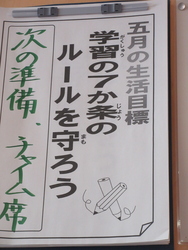 五月の生活目標
学習の7か条の
ルールを守ろう
次の準備、チャイム席